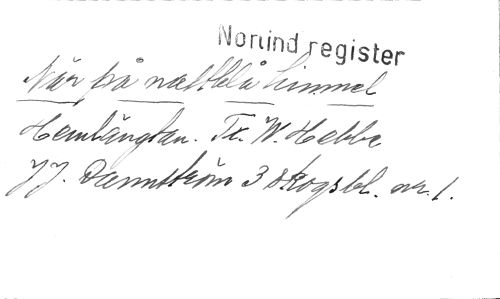 Norlind register
När på nattblå himmel
Hemlängtan. Tx. W. Hebbe
J J. Dannström 3 skogsbl. nr. 1.